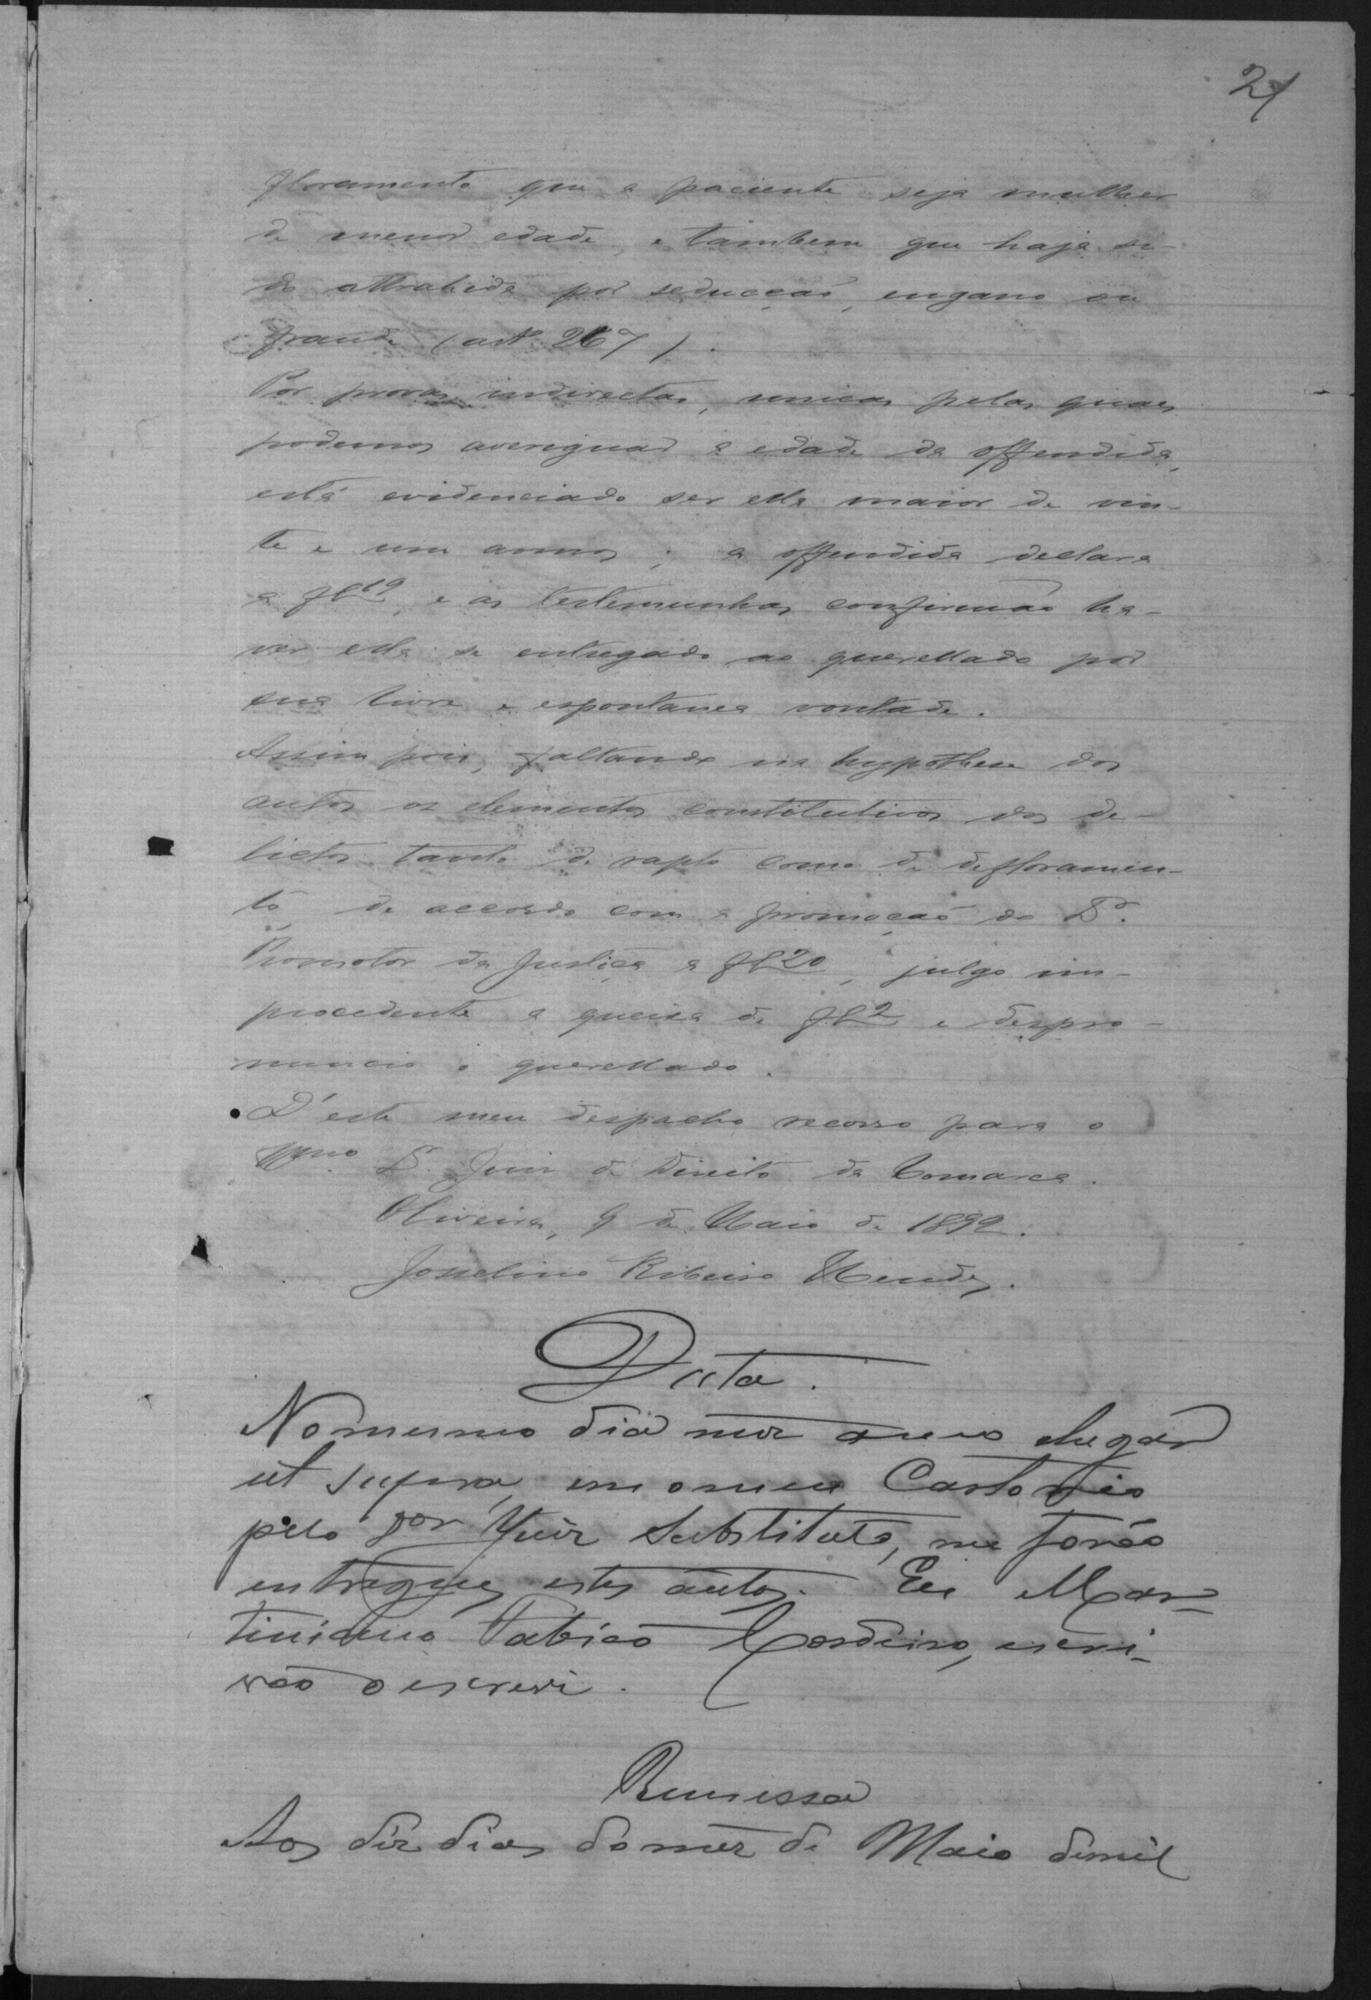 21
floramento que a paciente seja mulher
de menor edade, e tambem que haja si-
do attrahida por seducção, engano ou
fraude (art. 267).
Por provas indirectas, unicas pelas quaes
podemos averiguar a edade da offendida,
está evidenciado ser ella maior de vin-
te e um annos; a offendida declara
a fl 19, e as testemunhas confirmão ha-
ver ella se entregado ao querellado por
sua livre e espontanea vontade.
Assim pois, faltando na hypothese dos
autos os elementos constitutivos dos de-
lictos tanto de rapto como de defloramen-
to, de accordo com a promoção do Dr.
Promotor da Justiça a fl 20, julgo im-
procedente a queixa de fl 2 e despro-
nuncio o querellado.
D'este meu despacho recorro para o
Mmo Dr. Juiz de Direito da Comarca.
Oliveira, 9 de Maio de 1892.
Josselino Ribeiro Mendes.
Data.
No mesmo dia mez anno e lugar
ut supra, em o meu Cartorio
pelo Juiz Substituto, me forão
entregues estes autos. Eu Mar-
tiniano Cordeiro, escri-
vão o escrevi.
Remessa
Aos dez dias do mez de Maio de mil